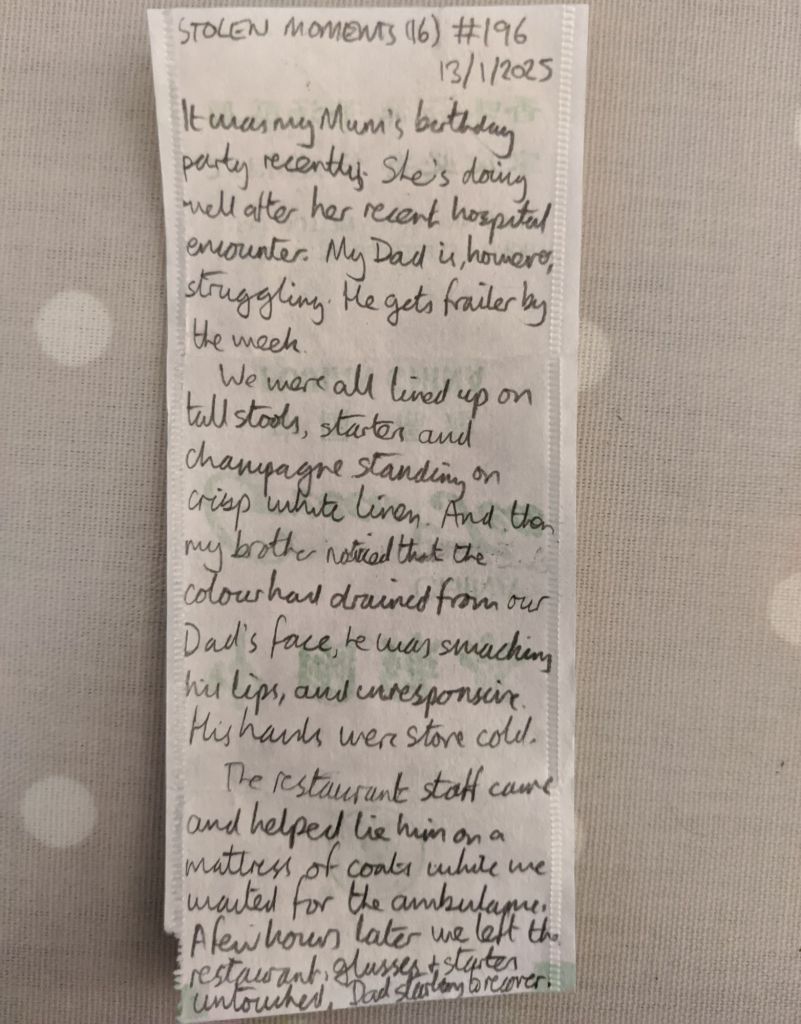 STOLEN MOMENTS (16) #196
13/1/2025
It was my Mum's birthday
party recently. She's doing
well after her recent hospital
encounter. My Dad is, however,
struggling. He gets frailer by
the week.
We were all lined up on
tall stools, starters and
champagne standing on
crisp white linen. And then
my brother noticed that the
colour had drained from our
Dad's face, he was smacking
his lips, and unresponsive.
His hands were stone cold.
The restaurant staff came
and helped lie him on a
mattress of coats while we
waited for the ambulance.
A few hours later we left the
restaurant, glasses + starters
untouched, Dad starting to recover.